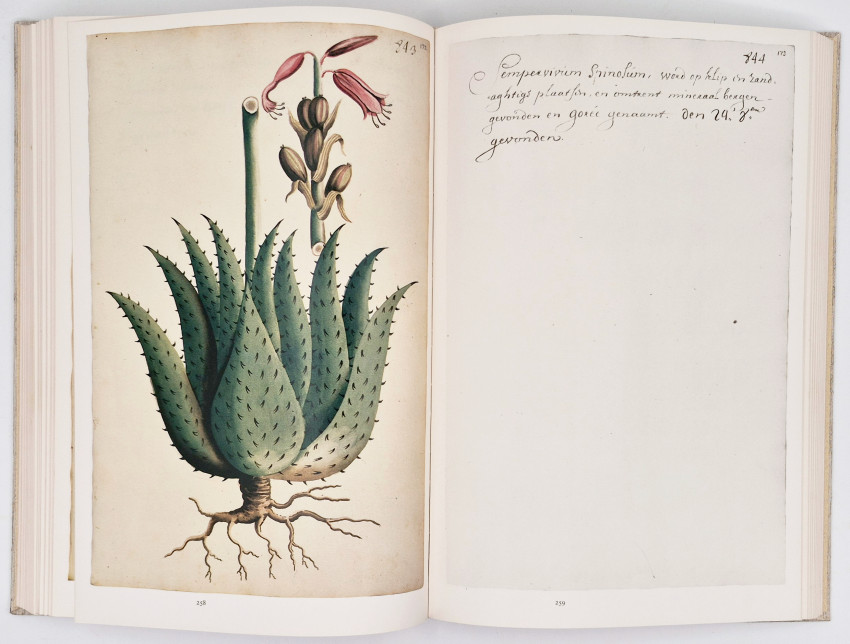 843
258
844
Sempervivium Spinosum, werd op klip en zand,
aghtige plaatsen, en omtrent mineraal bergen
gevonden en goree genaamt. den 24.
gevonden.
259